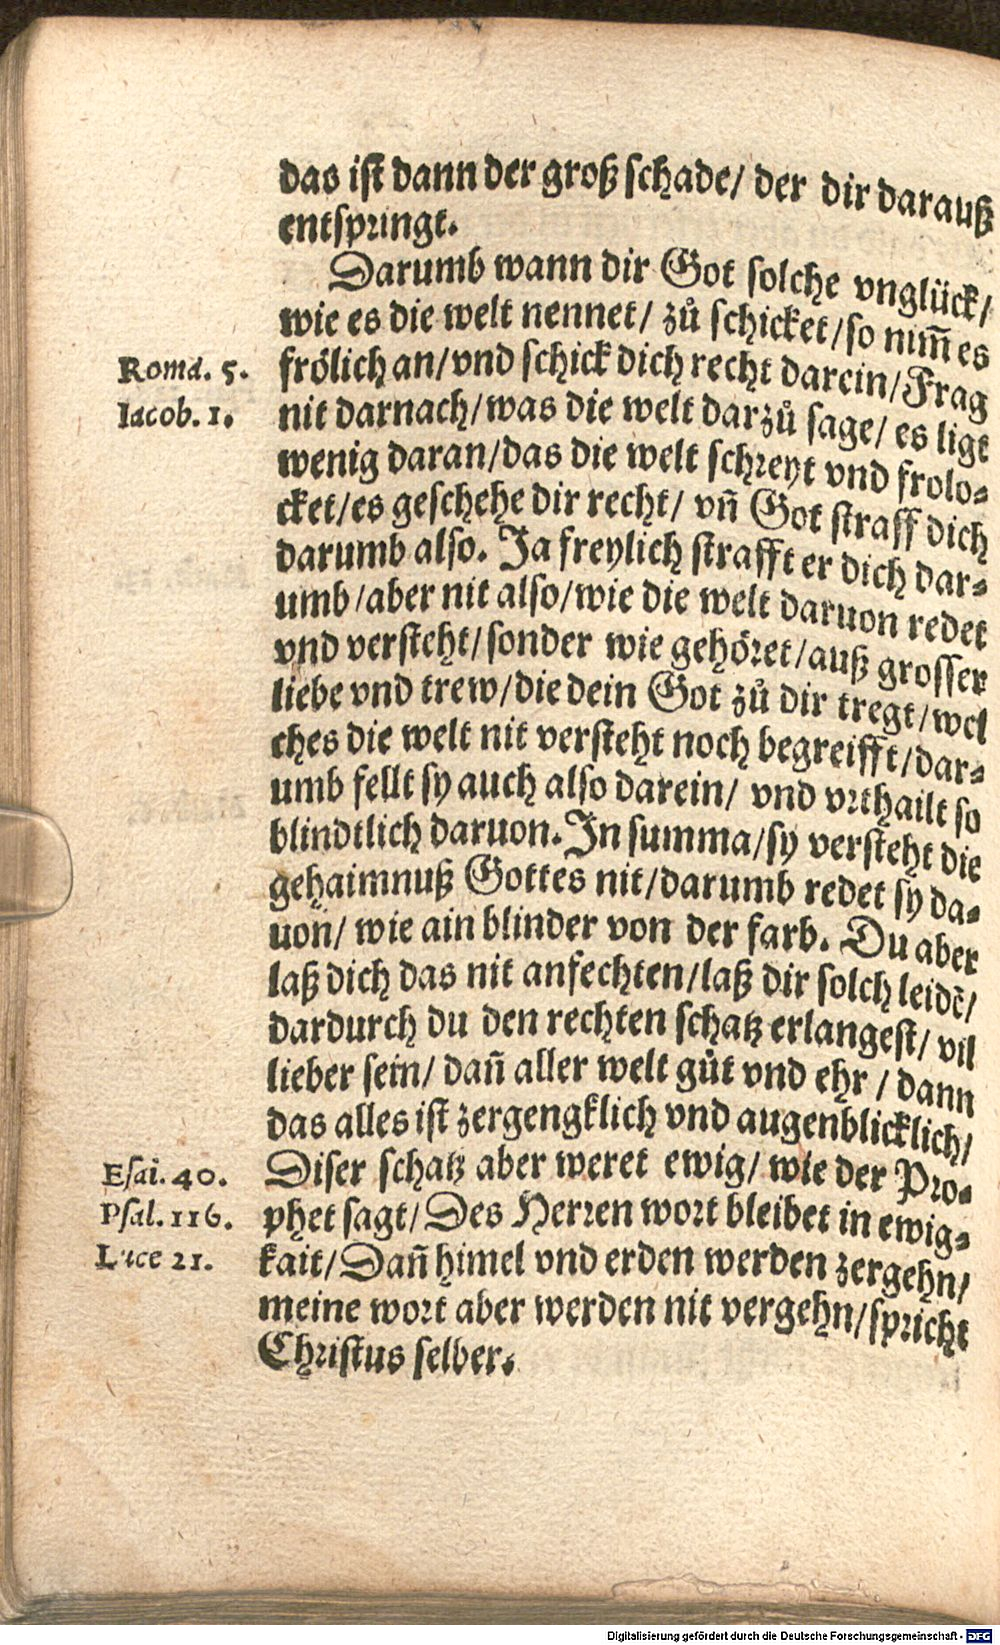 das ist dann der groß schade/ der dir darauß
entspringt.
Darumb wann dir Got solche vnglück/
wie es die welt nennet/ zů schicket/so nim̃ es
Roma. 5.
frölich an/vnd schick dich recht darein/Frag
Iacob. 1.
nit darnach/was die welt darzů sage/ es ligt
wenig daran/das die welt schreyt vnd frolo-
cket/es geschehe dir recht/ vñ Got straff dich
darumb also. Ja freylich strafft er dich dar-
umb/aber nit also/wie die welt daruon redet
vnd versteht/sonder wie gehöret/auß grosser
liebe vnd trew/die dein Got zů dir tregt/wel
ches die welt nit versteht noch begreifft/dar-
umb fellt sy auch also darein/ vnd vrthailt so
blindtlich daruon. In summa/sy versteht die
gehaimnuß Gottes nit/darumb redet sy da-
uon/ wie ain blinder von der farb. Du aber
laß dich das nit anfechten/laß dir solch leidẽ/
dardurch du den rechten schatz erlangest/ vil
lieber sein/ dañ aller welt gůt vnd ehr / dann
das alles ist zergengklich vnd augenblicklich/
Esai. 40.
Diser schatz aber weret ewig/ wie der Pro-
Psal. 116.
phet sagt/Des Herren wort bleibet in ewig-
Luce 21.
kait/Dañ himel vnd erden werden zergehn/
meine wort aber werden nit vergehn/spricht
Christus selber.
Digitalisierung gefördert durch die Deutsche Forschungsgemeinschaft - DFG